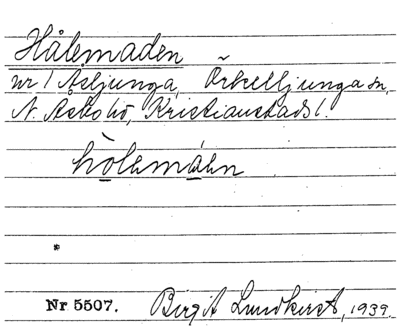 Hålemaden
nr 1 Åsljunga, Örkelljunga sn,
N. Åsbo hd, Kristianstads l.
hòlemáen
*
Nr 5507. Birgit Lundkvist, 1939.